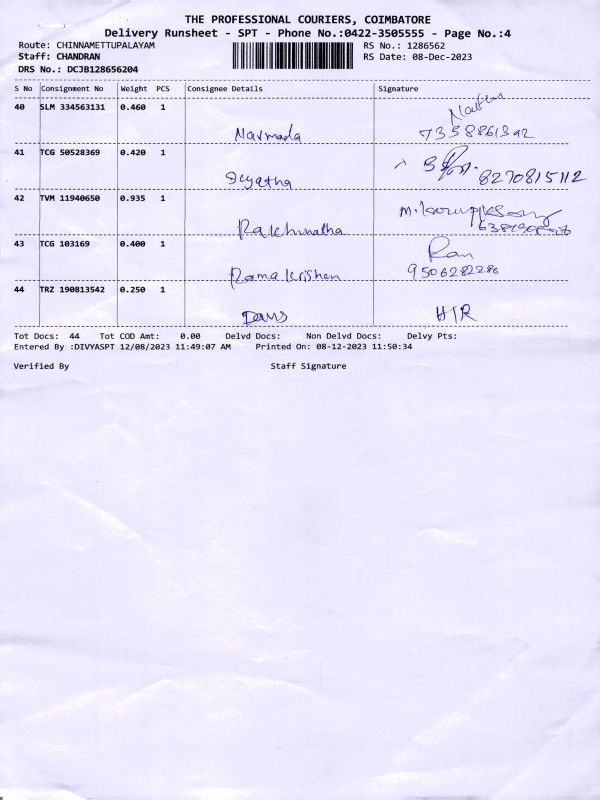 THE PROFESSIONAL COURIERS, COIMBATORE
Delivery Runsheet - SPT - Phone No.:0422-3505555 - Page No.:4
Route: CHINNAMETTUPALAYAM RS No.: 1286562
Staff: CHANDRAN RS Date: 08-Dec-2023
DRS No.: DCJB128656204
S No Consignment No Weight PCS Consignee Details Signature
40 SLM 334563131 0.460 1
Narmada 7358861392
41 TCG 50528369 0.420 1
8270815112
42 TVM 11940650 0.935 1
43 TCG 103169 0.400 1 Ram
Rama Krishen 9506282286
44 TRZ 190813542 0.250 1
H/R
Tot Docs: 44 Tot COD Amt: 0.00 Delvd Docs: Non Delvd Docs: Delvy Pts:
Entered By :DIVYASPT 12/08/2023 11:49:07 AM Printed On: 08-12-2023 11:50:34
Verified By Staff Signature